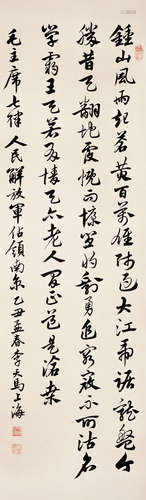 鍾山風雨起蒼黃百萬雄師過大江虎踞龍盤今
勝昔天翻地覆慨而慷宜將剩勇追窮寇不可沽名
學霸王天若有情天亦老人間正道是滄桑
毛主席七律人民解放軍佔領南京乙丑孟春李天馬上海